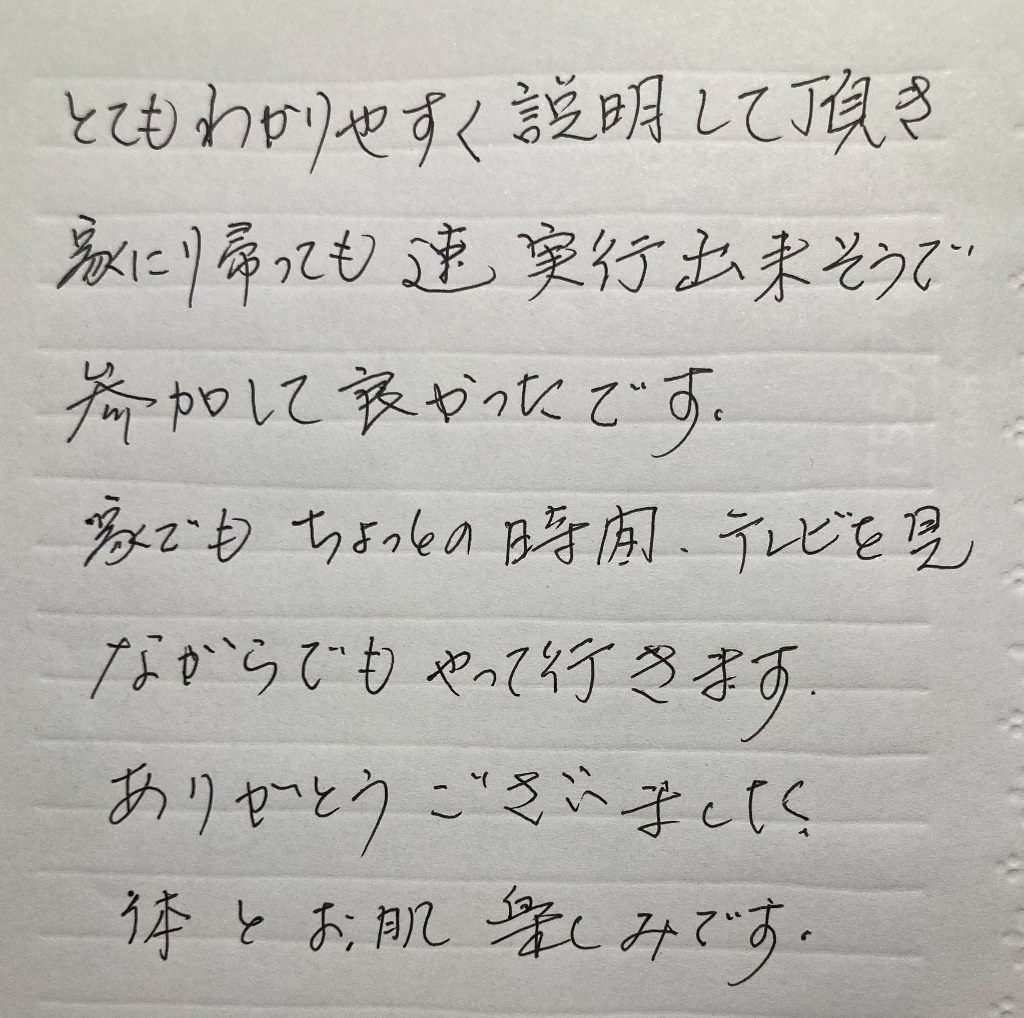 とてもわかりやすく説明して頂き
家にり帰っても速実行出来そうで
参加して良かったです。
家でもちょっとの時間、テレビを見
ながらでもやって行きます。
ありがとうございました
体とお肌楽しみです。